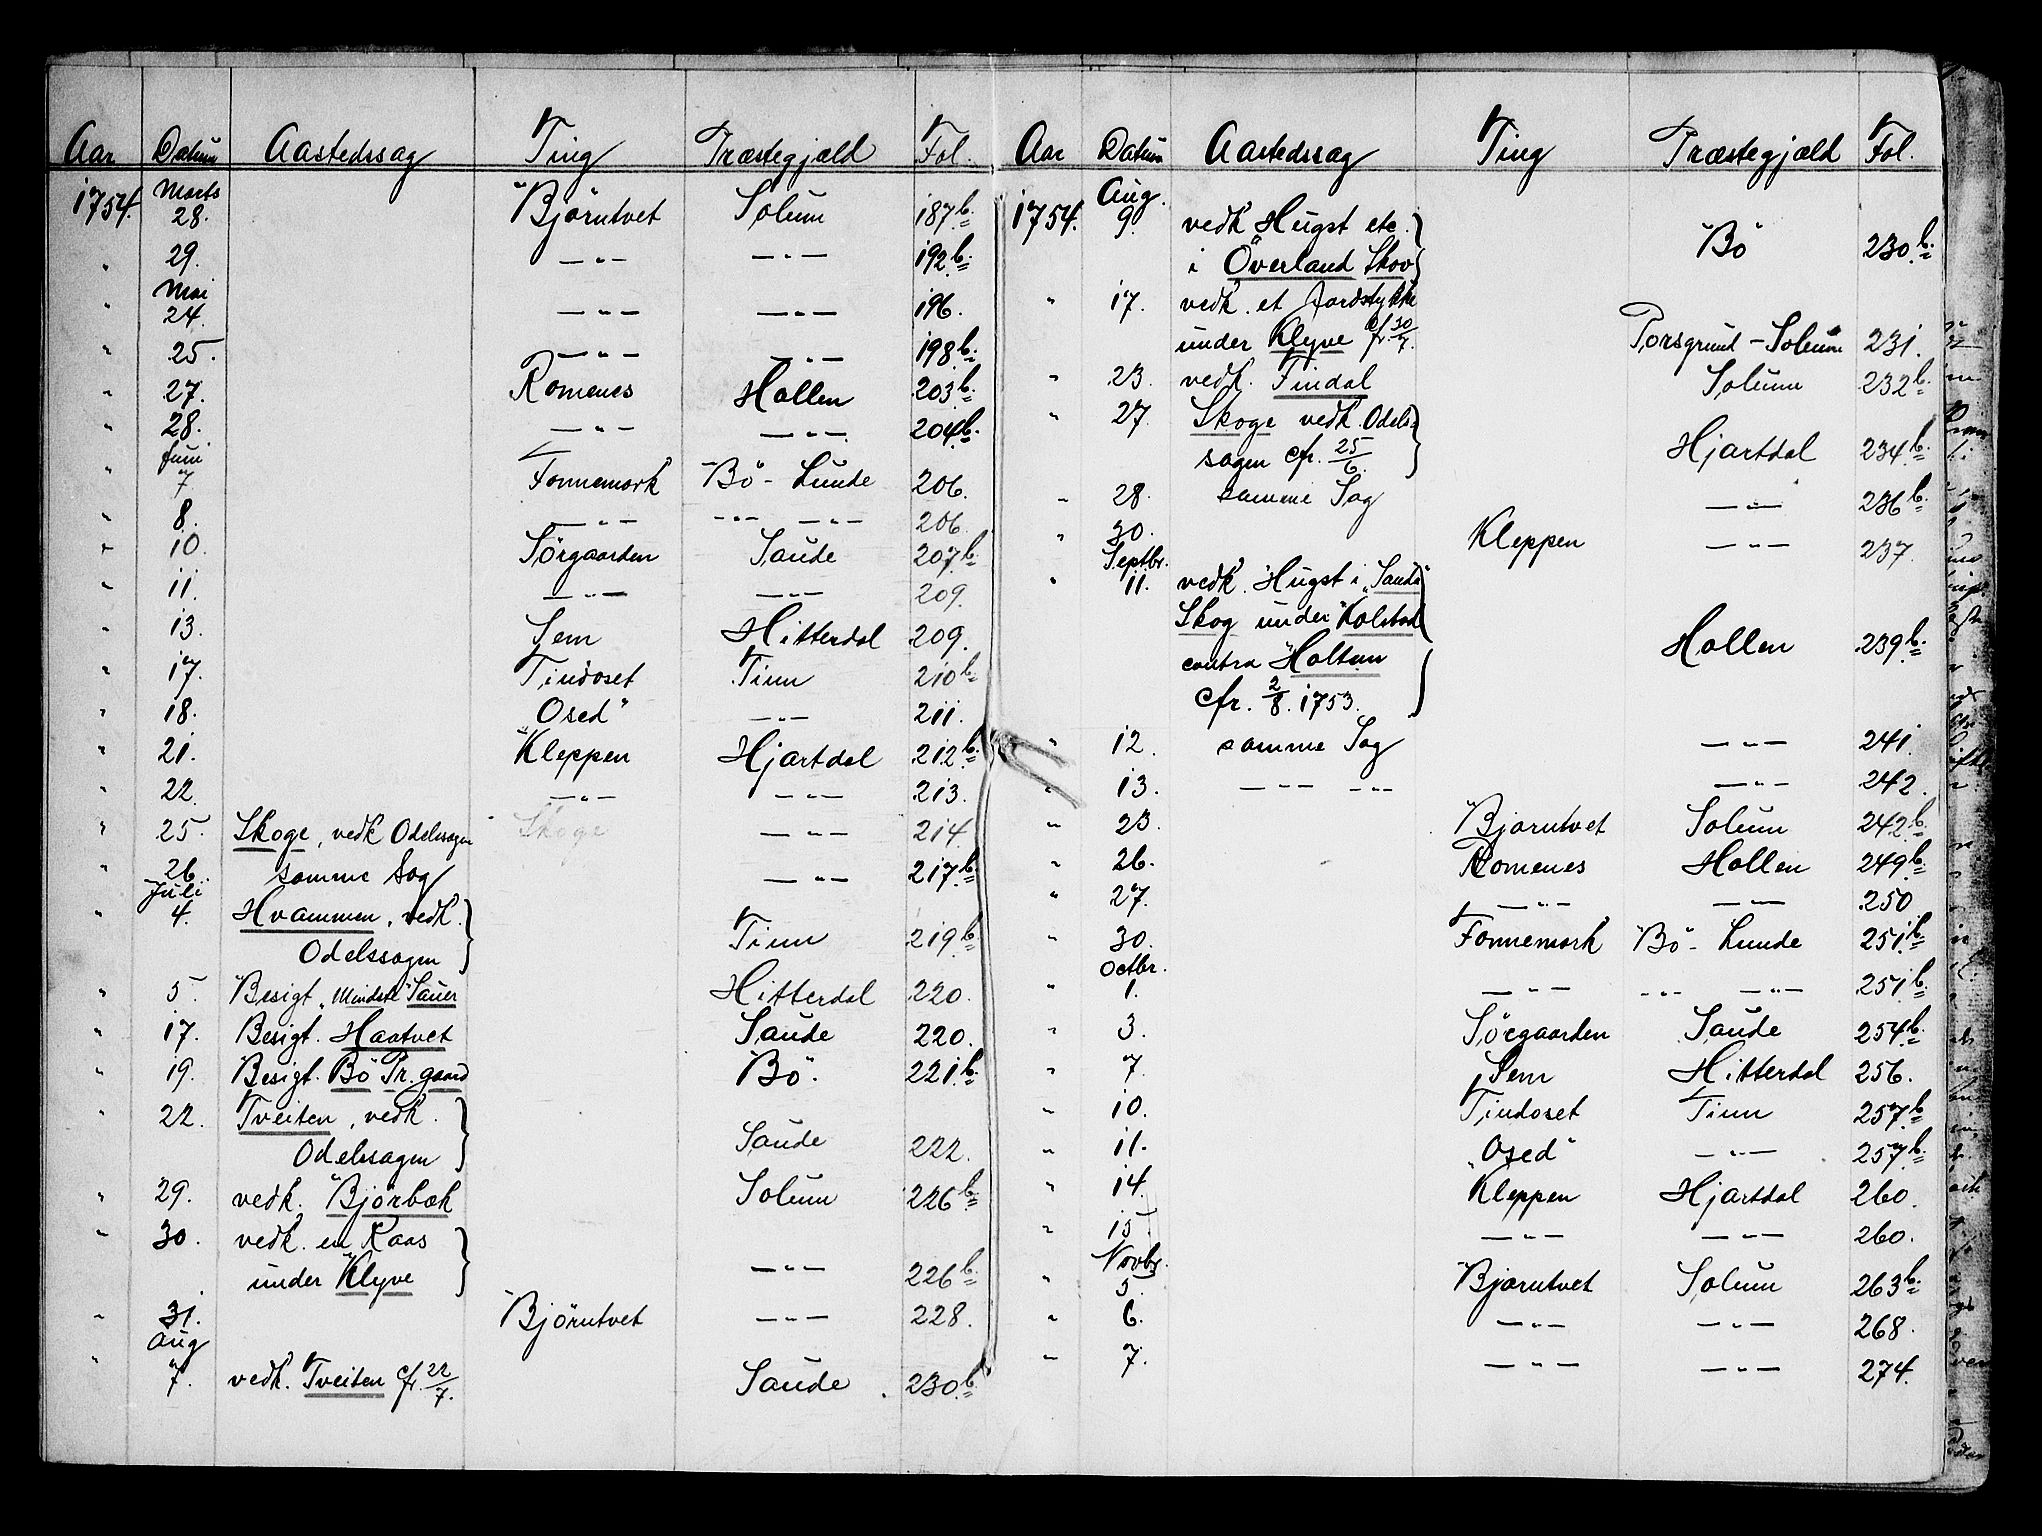 Aar Datum Aastedssag Ting Præstegjæld Fol.
1754. Marts 28. Björntvet Solum 187 b.
" 29. — " — — " — 192 b.
" Mai 24. — " — — " — 196.
" 25. — " — — " — 198 b.
" 27. Romenes Hollen 203 b.
" 28. — " — — " — 204 b.
" Juni 7. Fonnemork Bö - Lunde 206.
" 8. — " — — " — — " — 206.
" 10. Sörgaarden Saude 207 b.
" 11. — " — — " — 209.
" 13. Sem Hitterdal 209.
" 17. Tindoset Tinn 210 b.
" 18. "Osed" — " — 211.
" 21. Kleppen Hjartdal 212 b.
" 22. — " — — " — 213.
" 25. Skoge, vedk Odelssagen Skoge — " — 214
" 26. samme Sag — " — 217 b.
" Juli 4. Hvammen, vedk.
Odelssagen Tinn 219 b.
" 5. Besigt. "Mindste" Sauer Hitterdal 220.
" 17. Besigt. Haatvet Saude 220.
" 19. Besigt. Bö Pr. gaard Bö. 221 b.
" 22. Tveiten, vedk.
Odelssagen Saude 222.
" 29. vedk. Björbæk Solum 226 b.
" 30. vedk. en Raas
under Klyve — " — 226 b.
" 31. Björntvet — " — 228.
" Aug 7. vedk. Tveiten cfr. 22/7. Saude. 230 b.
Aar Datum Aastedssag Ting Præstegjæld Fol.
1754. Aug. 9. vedk Hugst etc.
i Överland Skov Bö 230 b.
" 17. vedk. et Jordstykke
under Klyve cfr. 30/7. Porsgrund - Solum 231.
" 23. vedk. Findal Solum 232 b.
" 27. Skoge vedk. Odels-
sagen cfr. 25/6. Hjartdal 234 b.
" 28. samme Sag — " — 236 b.
" 30. Kleppen — " — 237.
" Septbr. 11. vedk. Hugst i "Sauda"
Skog under Kolstad
contra Holtan
cfr. 2/8. 1753. Hollen 239 b.
" 12. samme Sag — " — 241.
" 13. — " — — " — — " — 242.
" 23. Bjorntvet Solum 242 b.
" 26. Romenes Hollen 249 b.
" 27. — " — — " — 250
" 30. Fonnemork Bö - Lunde 251 b.
" Octbr. 1. — " — — " — — " — 251 b.
" 3. Sörgaarden Saude 254 b.
" 7. Sem Hitterdal 256.
" 10. Tindoset Tinn 257 b.
" 11. "Osed" — " — 257 b.
" 14. Kleppen Hjartdal 260.
" 15 — " — — " — 260.
" Novbr. 5. Bjorntvet Solum 263 b.
" 6. — " — — " — 268.
" 7. — " — — " — 274.